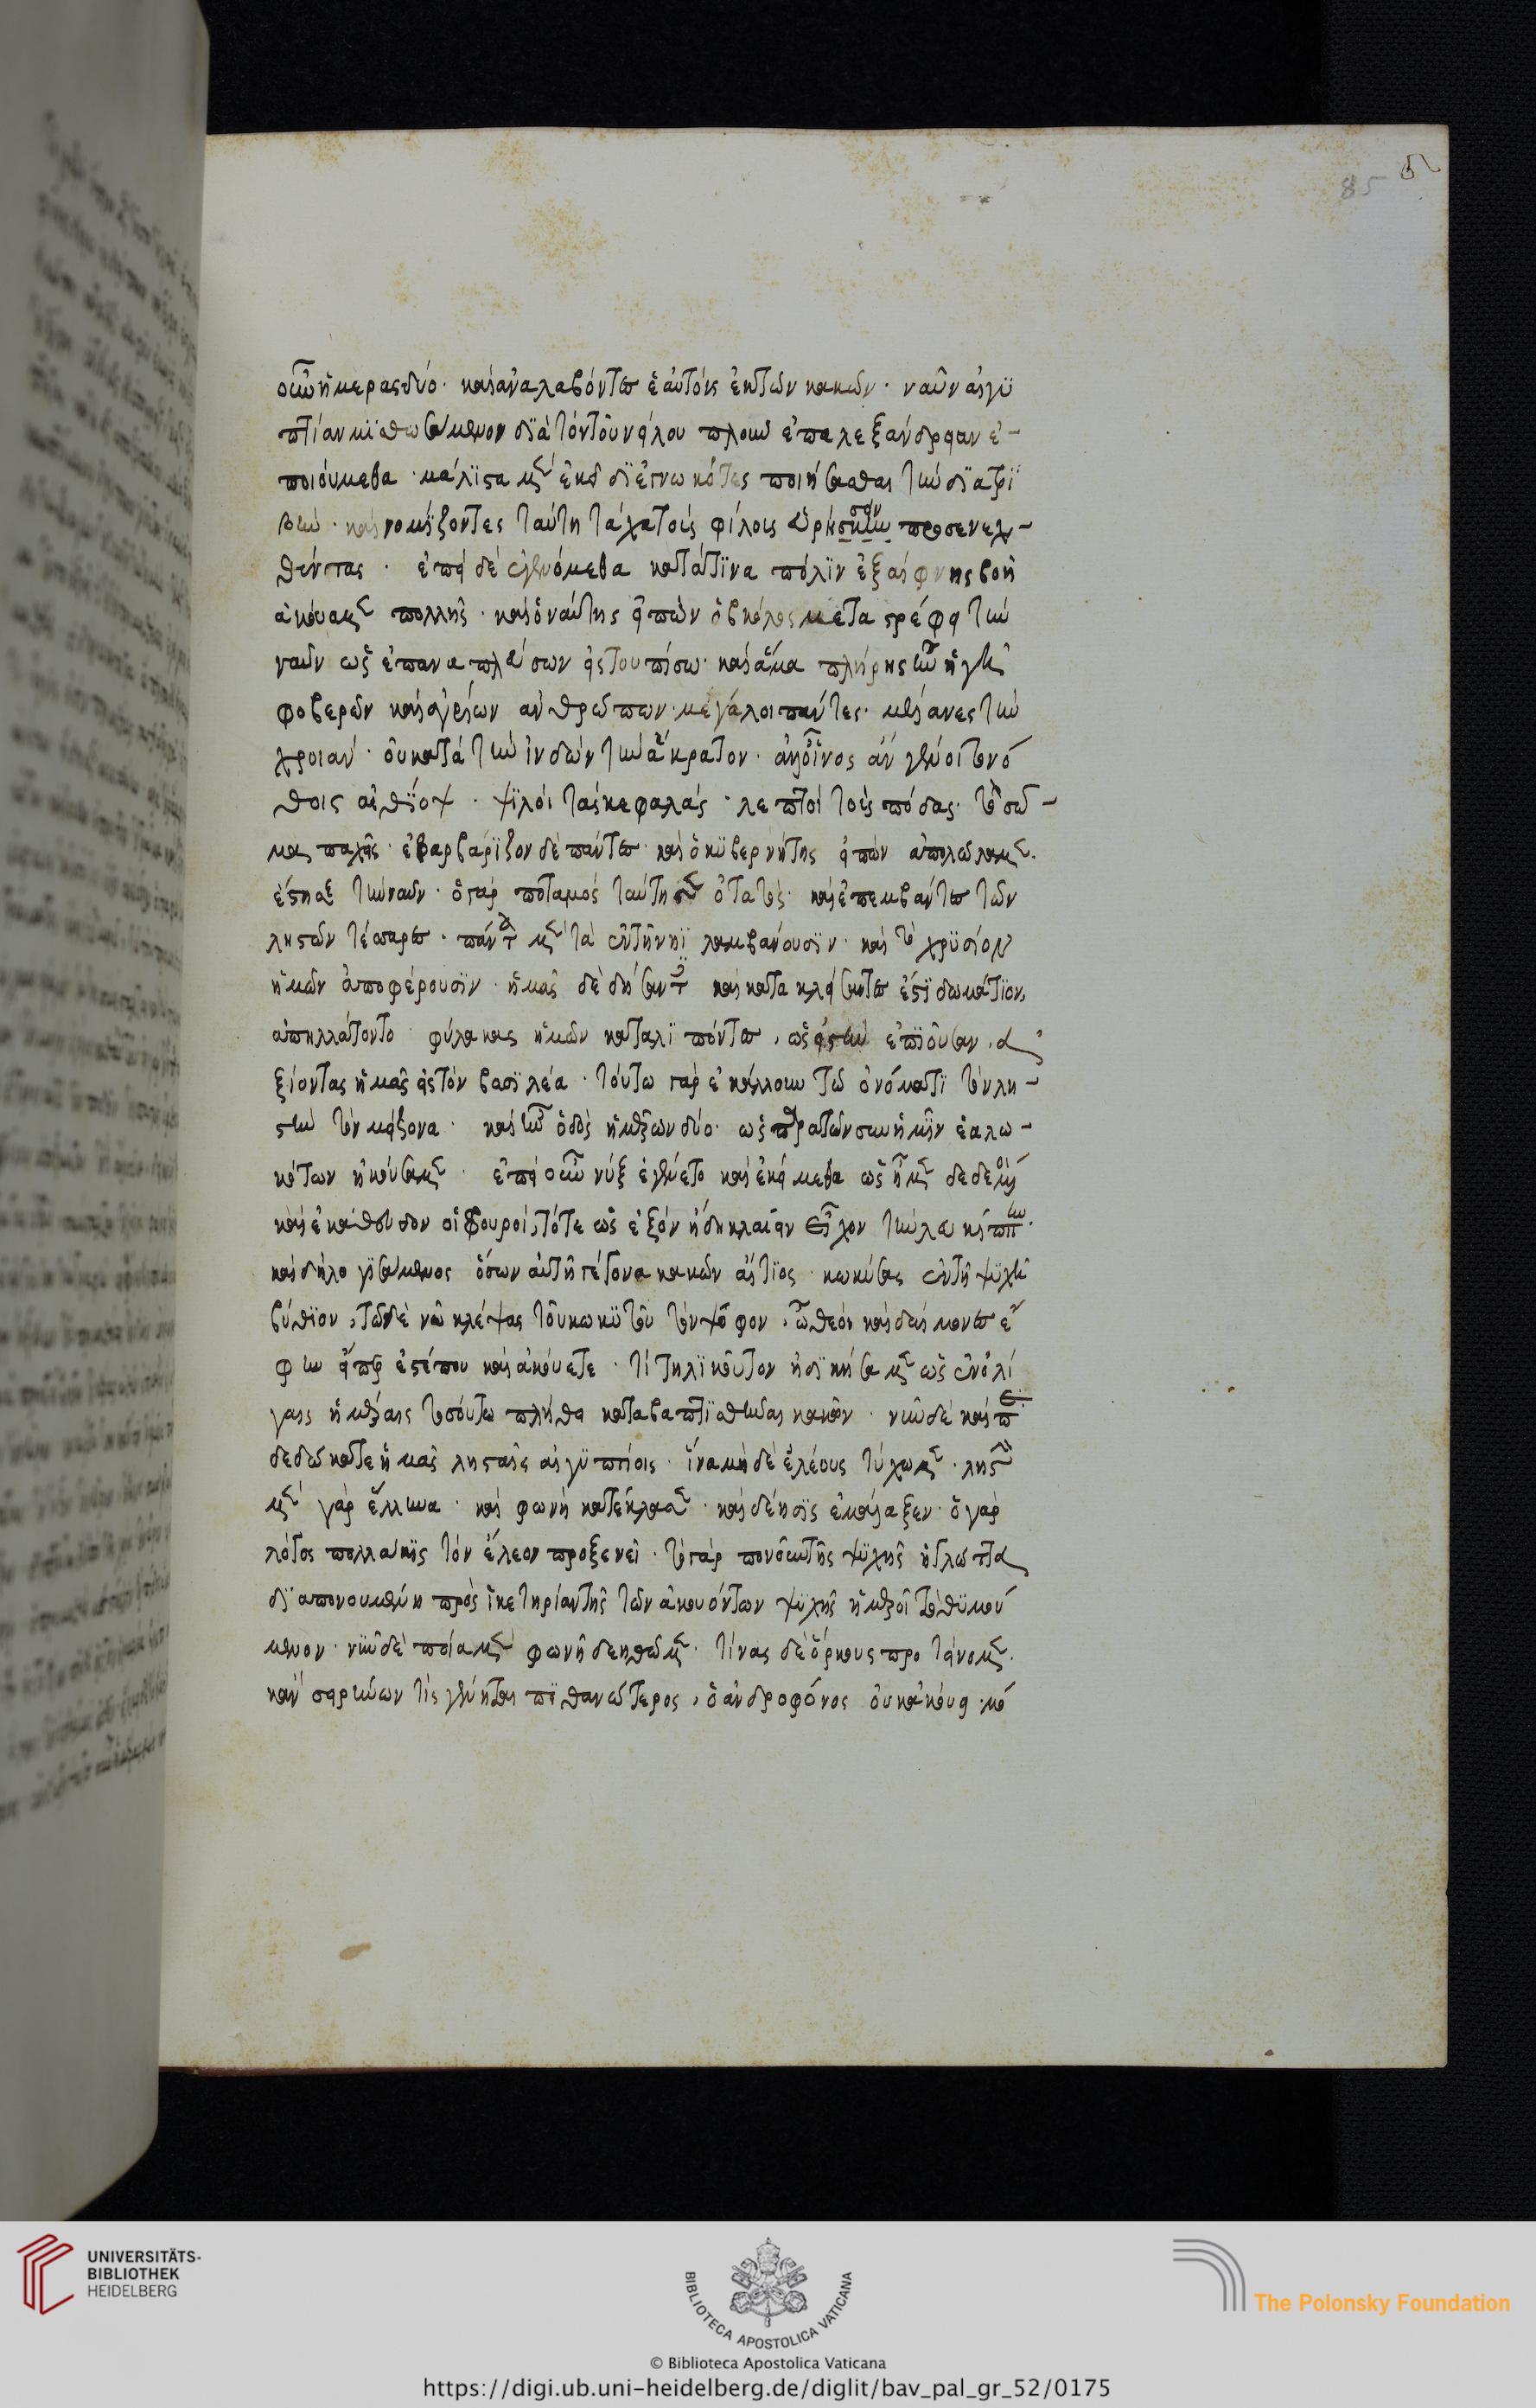 οὖν ἡμερας δύο · καὶ ἀναλαβόντες ἑαυτοὺς ἐκ τῶν κακῶν · ναῦν αἰγυ
πτίαν μισθωσάμενον διὰ τὸν τοῦ νείλου πλοῦν ἐπαλεξάνδρειαν ἐ-
ποιούμεθα · μάλιστα μὲν ἐκεῖ διεγνωκότες ποιήσασθαι τὴν διατρι
βὴν · καὶ νομίζοντες ταύτη τάχα τοὺς φίλους εὑρήσειν προσενεχ-
θέντας · ἐπεὶ δὲ ἐγενόμεθα κατά τινα πόλιν ἐξαίφνης βοῆς
ἀκούομεν πολλῆς · καὶ ὁ ναύτης εἰπὼν ὁ βουκόλος μεταστρέφει τὴν
ναῦν ὡς ἐπαναπλεύσων εἰς τουπίσω · καὶ ἅμα πλήρης ἦν ἡ γῆ
φοβερῶν καὶ ἀγρίων ἀνθρώπων · μεγάλοι πάντες · μέλανες τὴν
χροιάν · οὐ κατὰ τὴν ἰνδῶν τὴν ἄκρατον · ἀλλ' οἷος ἂν γένοιτο νό
θοις αἰθίοψ · ψιλοὶ τὰς κεφαλάς · λεπτοὶ τοὺς πόδας · τὸ σῶ-
μα παχεῖς · ἐβαρβάριζον δὲ πάντες · καὶ ὁ κυβερνήτης εἰπὼν ἀπολώλαμεν ·
ἔστησε τὴν ναῦν · ὁ γὰρ ποταμὸς ταύτη στενότατος · καὶ ἐπεμβάντες τῶν
ληστῶν τέσσαρες · πάντα μὲν τὰ ἐν τῆ νηῒ λαμβάνουσιν · καὶ τὸ χρυσίον
ἡμῶν ἀποφέρουσιν · ἡμᾶς δὲ δήσαντες καὶ κατακλείσαντες ἔς τι δωμάτιον,
ἀπηλλάττοντο φύλακας ἡμῶν καταλιπόντες, ὡς εἰς τὴν ἐπιοῦσαν, ἀ
ξοντας ἡμᾶς εἰς τὸν βασιλέα · τούτω γὰρ ἐκάλουν τῶ ὀνόματι τὸν λη-
στὴν τὸν μείζονα · καὶ ἦν ὁδὸς ἡμερῶν δύο · ὡς παρα τῶν συν ἡμῖν ἑαλω-
κότων ἠκούσαμεν · ἐπεὶ οὖν νὺξ ἐγένετο καὶ ἐκείμεθα ὡς ἦμεν δεδεμένοι
καὶ ἐκάθευδον οἱ φρουροί, τότε ὡς ἐξὸν ἤδη κλαίειν εἶχον τὴν λευκίππην ·
καὶ δὴ λογισάμενος ὅσων αὐτῆ γέγονα κακῶν αἴτιος · κωκύσας ἐν τῆ ψυχῆ
βύθιον, τῶ δὲ νῶ κλέψας τοῦ κωκυτοῦ τὸν ψόφον, ὦ θεοὶ καὶ δαίμονες ἔ
φην εἴπερ ἐστέ που καὶ ἀκούετε · τί τηλικοῦτον ἠδικήσαμεν ὡς ἐν ὀλί
γαις ἡμέραις τοσούτω πλήθει καταβαπτισθῆναι κακῶν · νῦν δὲ καὶ παρα
δεδώκατε ἡμᾶς λησταῖς αἰγυπτίοις · ἵνα μηδὲ ἐλέους τύχωμεν · ληστὴν
μὲν γὰρ ἕλληνα · καὶ φωνὴ κατέκλασε · καὶ δέησις ἐμάλαξεν · ὁ γὰρ
λόγος πολλάκις τὸν ἔλεον προξενεῖ · τὸ γὰρ πονοῦν τῆς ψυχῆς ἡ γλῶττα
διαπονουμένη πρὸς ἱκετηρίαν τῆς τῶν ἀκουόντων ψυχῆς ἡμεροῖ τὸ θυμού
μενον · νῦν δὲ ποία μὲν φωνῆ δεηθῶμεν · τίνας δὲ ὅρκους προτείνομεν ·
κἂν σειρήνων τις γένηται πιθανώτερος, ὁ ἀνδροφόνος οὐκ ἀκούει · μό
85
UNIVERSITÄTS-
BIBLIOTHEK
HEIDELBERG
BIBLIOTECA APOSTOLICA VATICANA
The Polonsky Foundation
© Biblioteca Apostolica Vaticana
https://digi.ub.uni-heidelberg.de/diglit/bav_pal_gr_52/0175